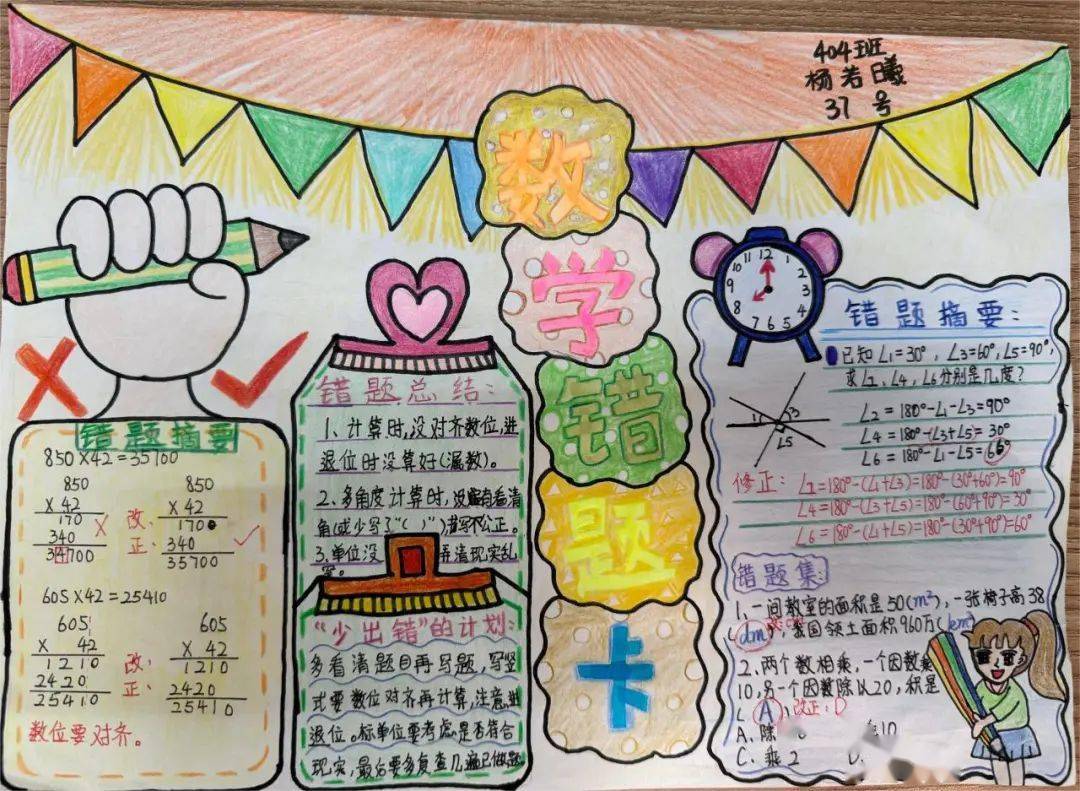 404班
杨若曦
37 号
数
学
错
题
卡
错题摘要
850×42=35700
850
× 42
170
340
34700
改
正:
850
× 42
1700
340
35700
605×42=25410
605
× 42
1210
2420
25410
改
正:
605
× 42
1210
2420
25410
数位要对齐。
错题总结:
1、计算时,没对齐数位,进
退位时没算好(漏数)。
2、多角度计算时,没有看清
角(或少写了“( )”)书写不公正。
3、单位没 弄清现实乱
写。
“少出错”的计划:
多看清题目再写题,写竖
式要数位对齐再计算,注意进
退位。标单位要考虑是否符合
现实,最后要多复查几遍已做题
12 1 2 3 4 5 6 7 8 9 10 11
错题摘要:
已知∠1=30°,∠3=60°,∠5=90°,
求∠2、∠4、∠6分别是几度?
1 3
∠5
∠2=180°-∠1-∠3=90°
∠4=180°-(∠3+∠5)=30°
∠6=180°-∠1-∠5=66°
修正:∠2=180°-(∠1+∠3)=180°-(30°+60°)=90°
∠4=180°-(∠3+∠5)=180°-(60°+90°)=30°
∠6=180°-(∠1+∠5)=180°-(30°+90°)=60°
错题集:
1.一间教室的面积是50(m²),一张椅子高38
(dm),我国领土面积960万(km²)
2、两个数相乘,一个因数乘
10,另一个因数除以20,积是
( A ),改正:D
A、除
10
C、乘2 D、